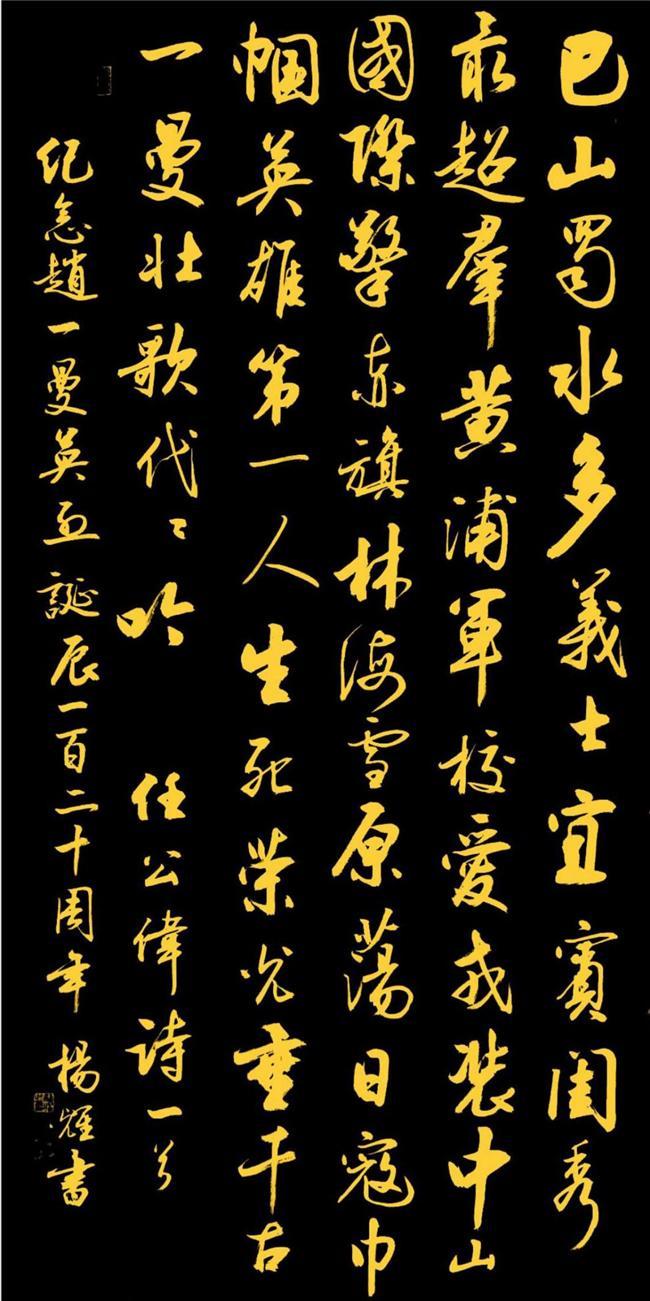 巴山蜀水多義士宜賓閨秀
最超羣黄浦軍校愛戎裝中山
國際擎赤旗林海雪原蕩日寇巾
幗英雄第一人生死榮光垂千古
一曼壯歌代〻吟 任公偉詩一首
纪念趙一曼英烈誕辰一百二十周年 楊書